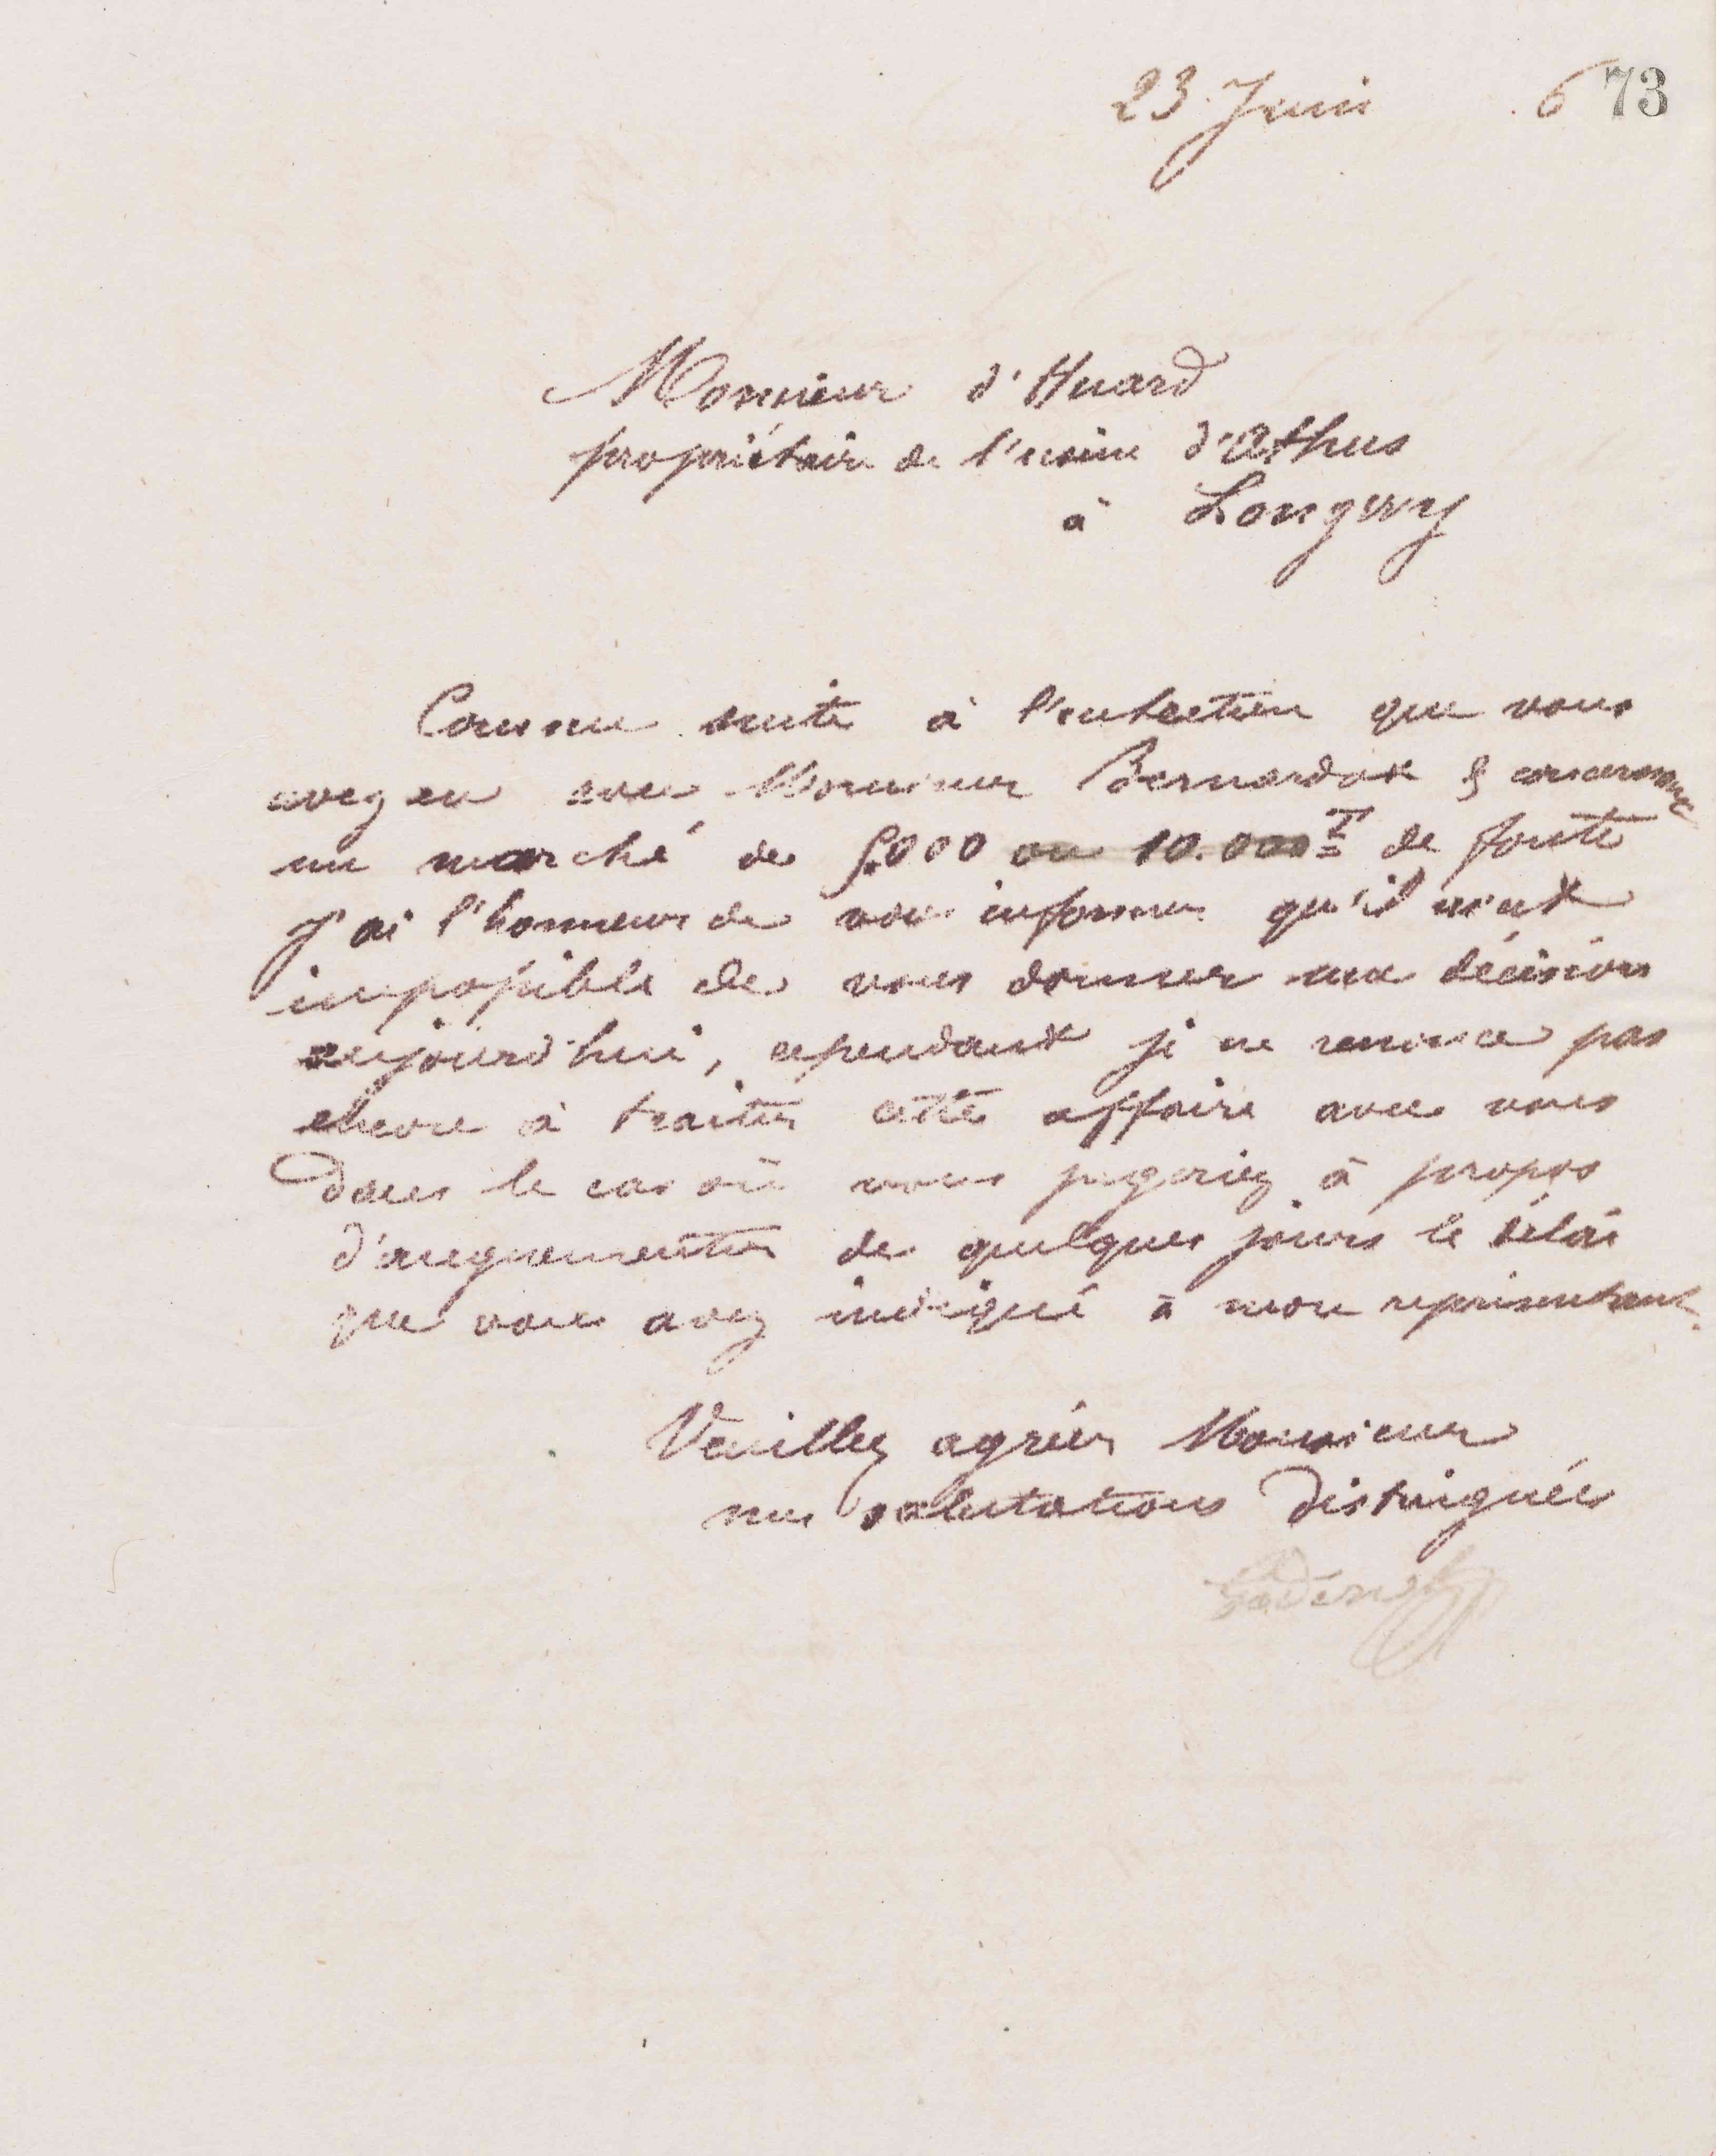 23 Juin 6 73
Monsieur d'Huard
propriétaire de l'usine d'Athus
à Longwy
Comme suite à l'entretien que vous
avez eu avec Monsieur Bernardot & concernant
un marché de 5.000 ou 10.000 T de fonte
J'ai l'honneur de vous informer qu'il m'est
impossible de vous donner une décision
aujourd'hui, cependant je ne renonce pas
encore à traiter cette affaire avec vous
dans le cas où vous jugeriez à propos
d'augmenter de quelques jours le délai
que vous avez indiqué à mon représentant.
Veuillez agréer Monsieur
mes salutations distinguées